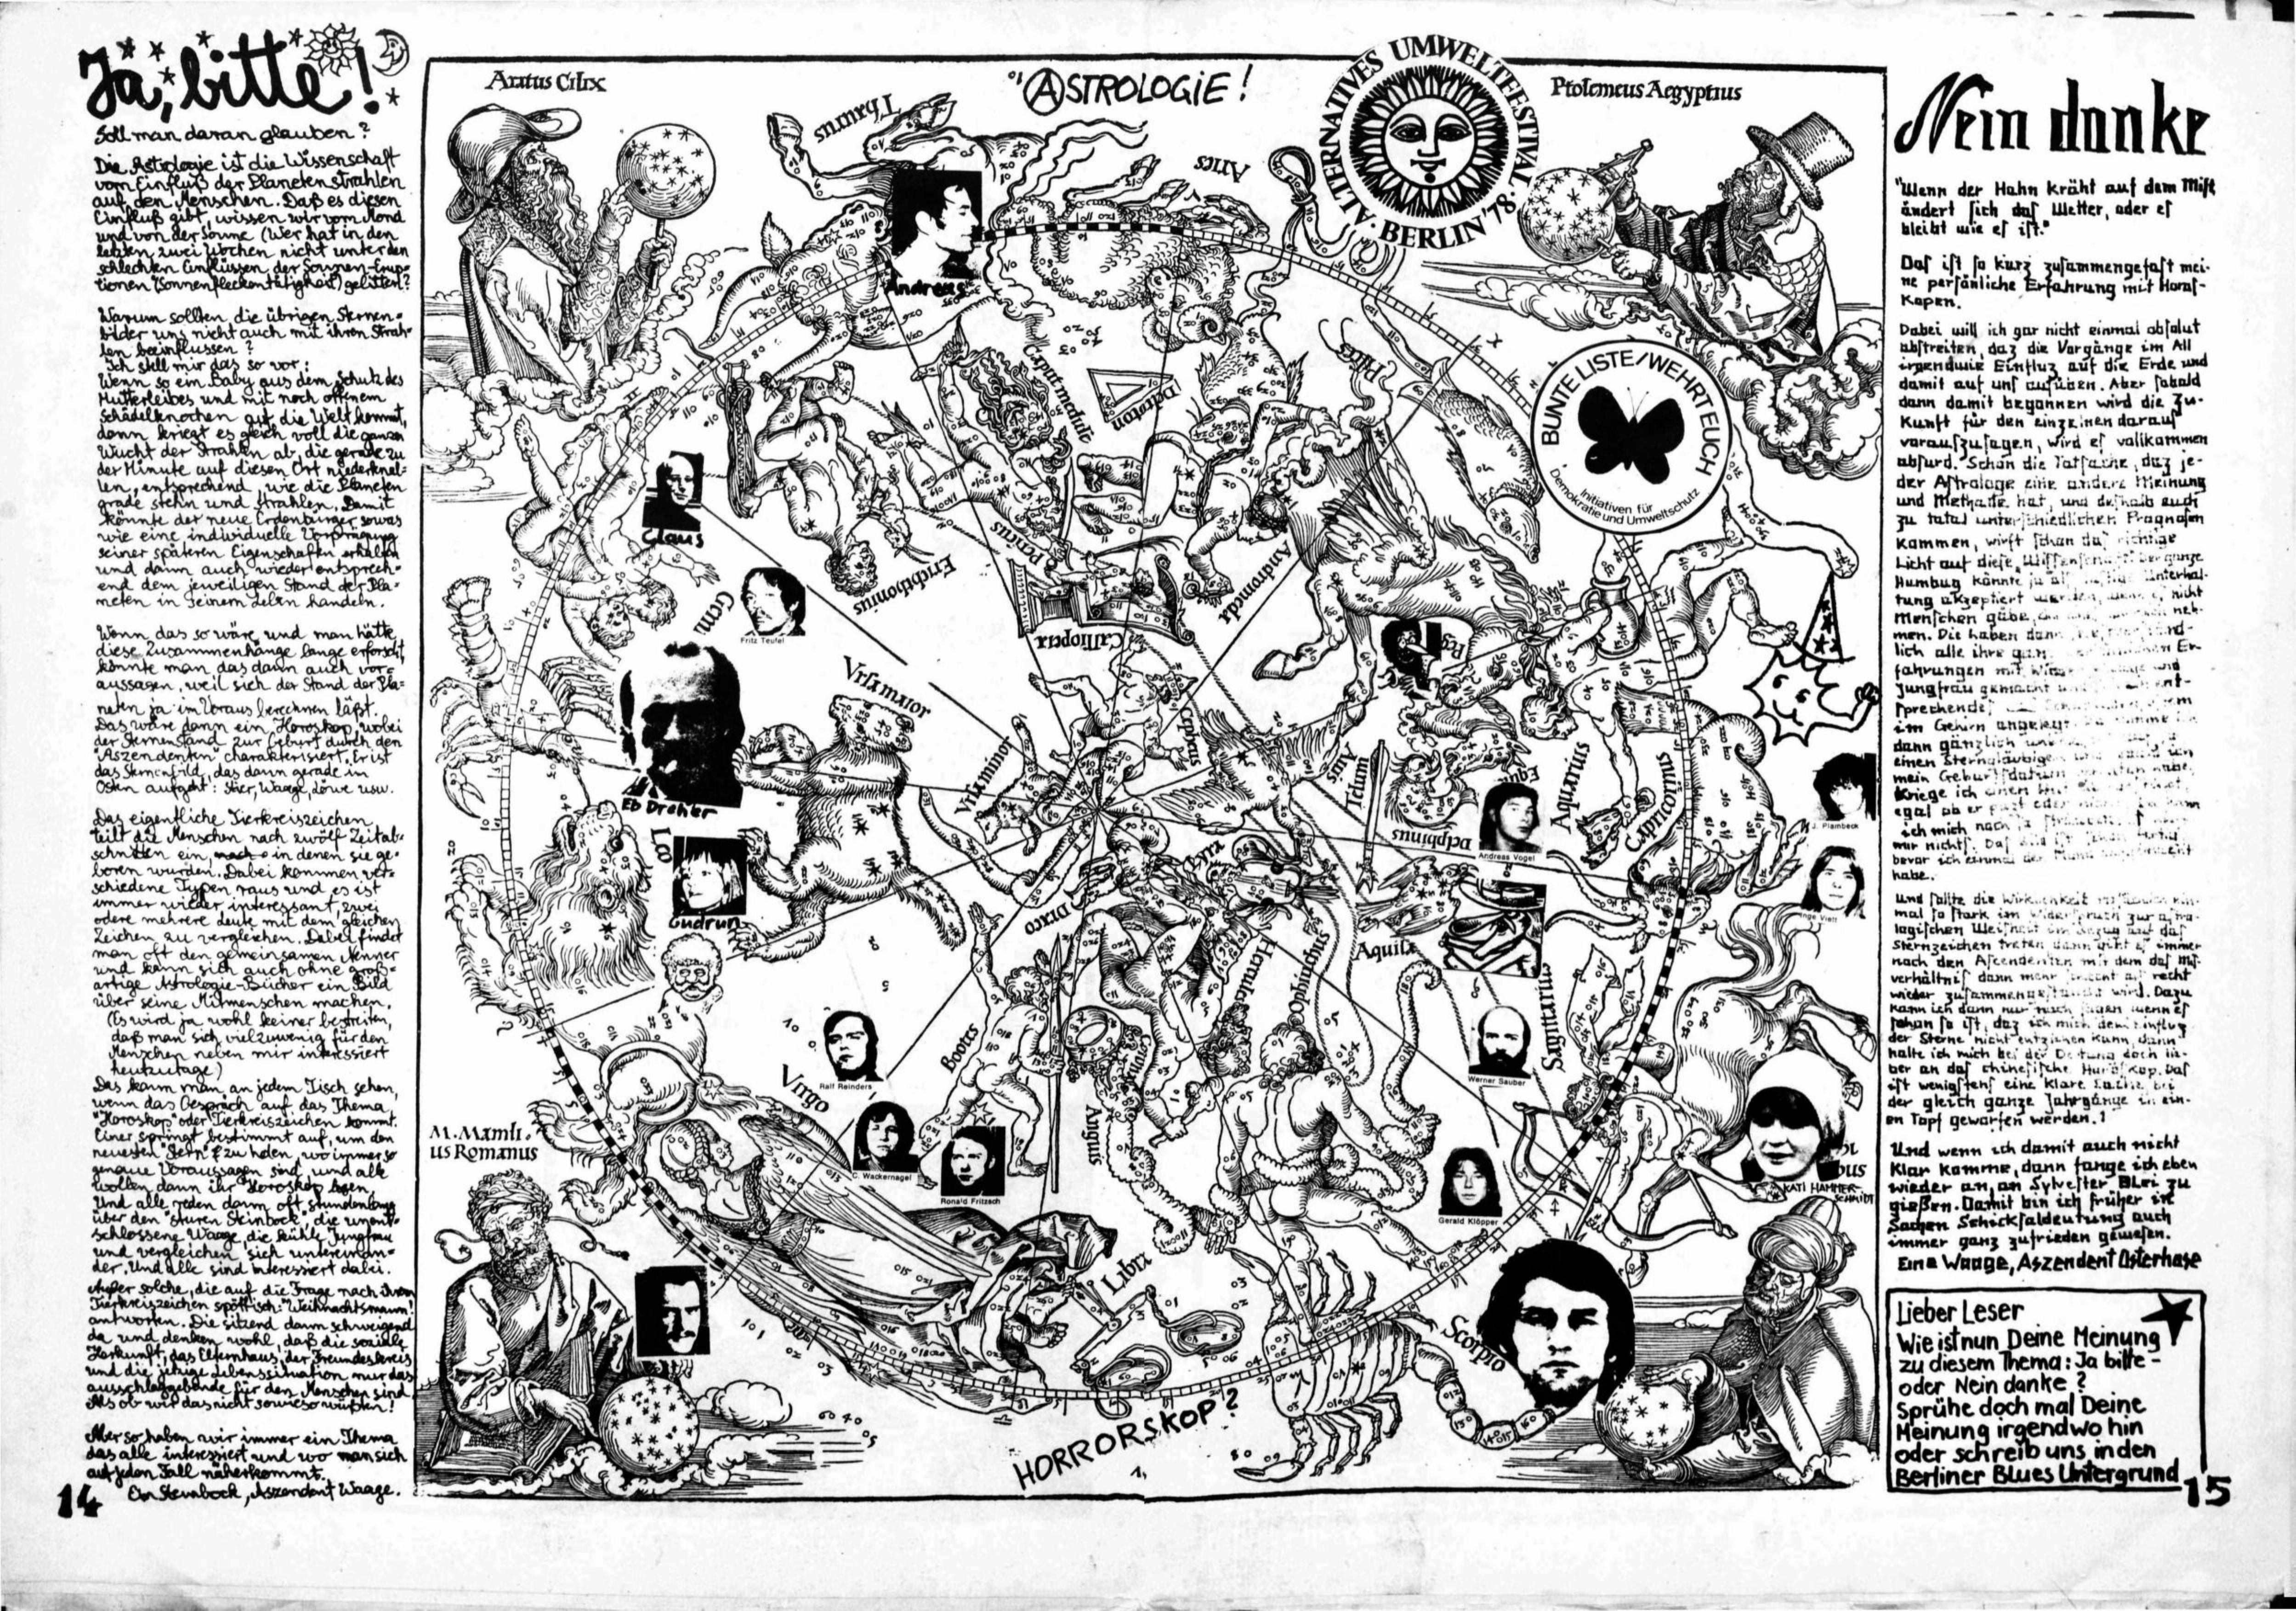 Ja, bitte!
Soll man daran glauben?
Die Astrologie ist die Wissenschaft
vom Einfluß der Planetenstrahlen
auf den Menschen. Daß es diesen
Einfluß gibt, wissen wir vom Mond
und von der Sonne (Wer hat in den
letzten zwei Wochen nicht unter den
schlechten Einflüssen der Sonnen-Erup-
tionen (Sonnenfleckentätigkeit) gelitten?
Warum sollten die übrigen Sternen-
bilder uns nicht auch mit ihren Strah-
len beeinflussen?
Ich stell mir das so vor:
Wenn so ein Baby aus dem Schutz des
Mutterleibes und mit noch offenem
Schädelknochen auf die Welt kommt,
dann kriegt es gleich voll die ganze
Wucht der Strahlen ab, die gerade zu
der Minute auf diesen Ort niederknal-
len, entsprechend, wie die Planeten
grade stehn und strahlen. Damit
könnte der neue Erdenbürger sowas
wie eine individuelle Vorprägung
seiner späteren Eigenschaften erhalten
und dann auch wieder entsprech-
end dem jeweiligen Stand der Pla-
neten in seinem Leben handeln.
Wenn das so wäre und man hätte
diese Zusammenhänge lange erforscht,
könnte man das dann auch vor-
aussagen, weil sich der Stand der Pla-
neten ja im Voraus berechnen läßt.
Das wäre dann ein Horoskop, wobei
der Sternenstand zur Geburt durch den
"Aszendenten" charakterisiert. Er ist
das Sternenbild, das dann gerade im
Osten aufgeht: Stier, Waage, Löwe usw.
Das eigentliche Tierkreiszeichen
teilt die Menschen nach zwölf Zeitab-
schnitten ein, in denen sie ge-
boren wurden. Dabei kommen ver-
schiedene Typen raus und es ist
immer wieder interessant, zwei
odere mehrere Leute mit dem gleichen
Zeichen zu vergleichen. Dabei findet
man oft den gemeinsamen Nenner
und kann sich auch ohne groß-
artige Astrologie-Bücher ein Bild
über seine Mitmenschen machen.
(Es wird ja wohl keiner bestreiten,
daß man sich viel zuwenig für den
Menschen neben mir interssiert
heutzutage)
Das kann man an jedem Tisch sehen,
wenn das Gespräch auf das Thema
"Horoskop" oder Tierkreiszeichen kommt.
Einer springt bestimmt auf, um den
neuesten "Stern" zu holen, wo immer so
genaue Voraussagen sind, und alle
wollen dann ihr Horoskop lesen.
Und alle reden dann oft stundenlang
über den "sturen Steinbock", die unent-
schlossene Waage, die kühle Jungfrau
und vergleichen sich unterenan-
der. Und alle sind interessiert dabei.
Außer solche, die auf die Frage nach ihrem
Tierkreiszeichen spöttisch: "Weihnachtsmann!"
antworten. Die sitzend dann schweigend
da und denken wohl, daß die soziale
Herkunft, das Elternhaus, der Freundeskreis
und die jetzige Lebenssituation nur das
ausschlaggebende für den Menschen sind.
Als ob wir das nicht sowieso wüßten!
Aber so haben wir immer ein Thema
das alle interessiert und wo man sich
auf jeden Fall näherkommt.
Ein Steinbock, Aszendent Waage.
14
Aratus Cilix
ASTROLOGIE!
ALTERNATIVES UMWELTFESTIVAL · BERLIN '78 ·
Ptolemeus Aegyptius
Thaurus
Aries
Andreas
Caput meduse
Deltoton
Pisces
BUNTE LISTE/WEHRT EUCH
Initiativen für
Demokratie und Umweltschutz
Claus
Perseus
Erichthonius
Andromeda
Gemi
Fritz Teufel
Calliopeia
Vrsa maior
Cepheus
Vrsa minor
Eb Dreher
Auis
Telum
Aquarius
Capricornus
J. Plambeck
Delphinus
Andreas Vogel
Leo
Gudrun
Draco
Inge Viett
Hercules
Ophiuchus
Aquila
Bootes
Sagittarius
Ralf Reinders
Werner Sauber
Virgo
Corona
Anguis
M. Mamli.
us Romanus
C. Wackernagel
Ronald Fritzsch
Gerald Klöpper
KATI HAMMER-
SCHMIDT
Libra
Scorpio
HORRORSKOP?
Nein danke
"Wenn der Hahn kräht auf dem Mist
ändert sich das Wetter, oder es
bleibt wie es ist."
Das ist so kurz zusammengefast mei-
ne persönliche Erfahrung mit Horos-
kopen.
Dabei will ich gar nicht einmal absolut
abstreiten, daz die Vorgänge im All
irgendwie Einfluz auf die Erde und
damit auf uns ausüben. Aber sobald
dann damit begonnen wird die Zu-
kunft für den einzelnen daraus
vorauszusagen, wird es vollkommen
absurd. Schon die Tatsache, daz je-
der Astrologe eine andere Meinung
und Methode hat, und deshalb auch
zu total unterschiedlichen Prognosen
kommen, wirft schon das richtige
Licht auf diese Der ganze
Humbug könnte ja als Unterhal-
tung akzeptiert werden, wenn es nicht
Menschen gäbe, neh-
men. Die haben dann
lich alle ihre Er-
fahrungen mit und
Jungfrau gemacht und ent-
sprechende
im Gehirn angelegt.
dann gänzlich
einen Sterngläubigen
mein Geburtsdatum habe,
Kriege ich einen
egal ob er past oder nicht.
ich mich nach
nur nichts. Das
bevor ich einmal den Mund
habe.
Und sollte die Wirklichkeit ein-
mal so stark im Widerspruch zur astro-
logischen Weisheit im Bezug auf das
Sternzeichen treten dann gibt es immer
noch den Ascendenten mit dem das Mis-
verhältnis dann mehr schlecht als recht
wieder wird. Dazu
kann ich dann nur noch sagen wenn es
schon so ist, daz ich mich dem Einfluz
der Sterne nicht entziehen kann, dann
halte ich mich bei der Deutung doch lie-
ber an das chinesische Horoskop. Das
ist wenigstens eine klare Sache, bei
der gleich ganze Jahrgänge in ein-
en Topf geworfen werden.!
Und wenn ich damit auch nicht
klar komme, dann fange ich eben
wieder an, an Sylvester BLei zu
gießen. Damit bin ich früher in
Sachen Schicksaldeutung auch
immer ganz zufrieden gewesen.
Eine Waage, Aszendent Osterhase
Lieber Leser
Wie ist nun Deine Meinung
zu diesem Thema: Ja bitte -
oder Nein danke?
Sprühe doch mal Deine
Meinung irgendwo hin
oder schreib uns, in den
Berliner Blues Untergrund
15